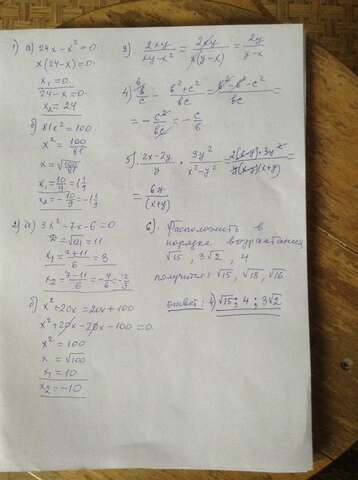 1) а) 24x - x² = 0
x(24-x) = 0
x₁ = 0
24 - x = 0
x₂ = 24
б) 81x² = 100
x² = 100/81
x = √100/81
x₁ = 10/9 = 1 1/9
x₂ = -10/9 = -1 1/9
2) а) 3x² - 7x - 6 = 0
D = √121 = 11
x₁ = 7+11/6 = 3
x₂ = 7-11/6 = -4/6 = -2/3
б) x² + 20x = 20x + 100
x² + 20x - 20x - 100 = 0
x² = 100
x = √100
x₁ = 10
x₂ = -10
3) 2xy/xy-x² = 2xy/x(y-x) = 2y/y-x
4) b/c - b²+c²/bc = b²-b²-c²/bc =
= -c²/bc = -c/b
5) 2x-2y/y · 3y²/x²-y² = 2(x-y)·3y²/y(x-y)(x+y) =
= 6y/(x+y)
6) Расположить в
порядке возрастания
√15, 3√2, 4
получится: √15, √18, √16
ответ: √15; 4; 3√2